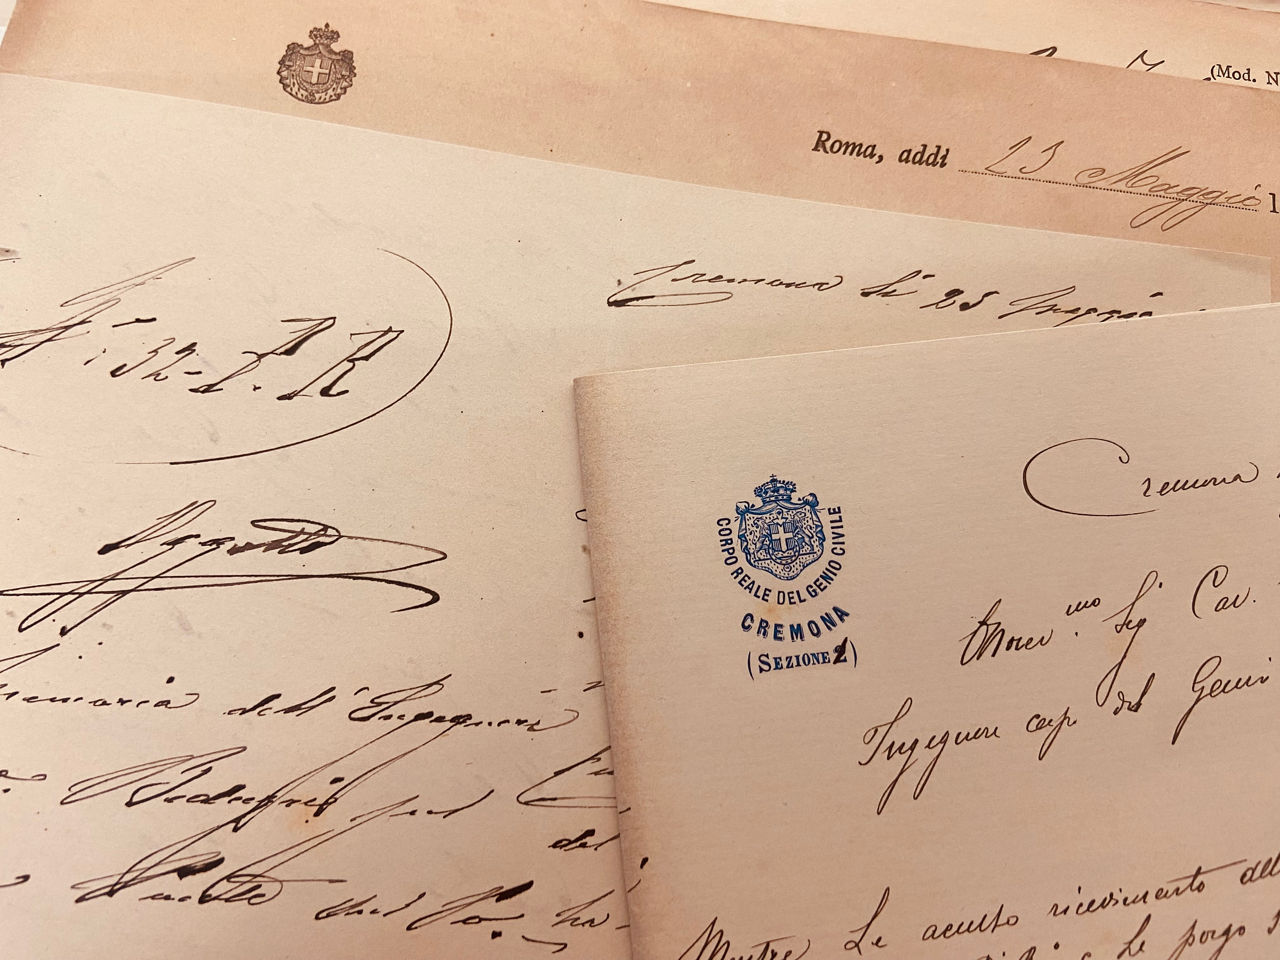 (Mod. N
Roma, addì 23 Maggio 1
Cremona li 25 Maggio
N° 32 - P. R
Oggetto
Memoria dell' Ingegnere
pel
del
Ponte sul Po. ha-
CORPO REALE DEL GENIO CIVILE
CREMONA
(SEZIONE 2)
Cremona
Onor.mo Sig Cav.
Ingegnere capo del Genio
Mentre Le accuso ricevimento del
Le porgo